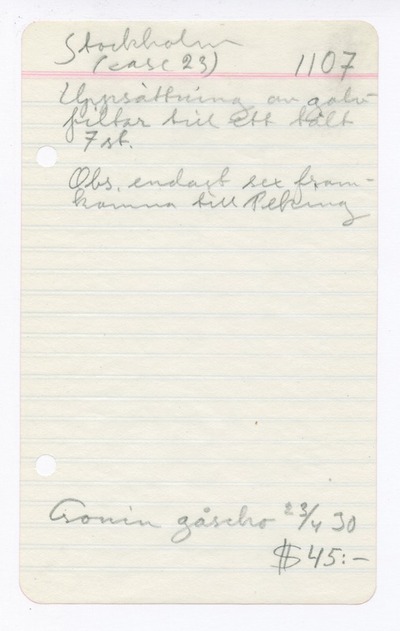 Stockholm
(case 23) 1107
Uppsättning av golv-
filtar till ett tält
7 st.
Obs. endast sex fram-
komna till Peking
Gonin gåscho 23/4 30
$ 45:-